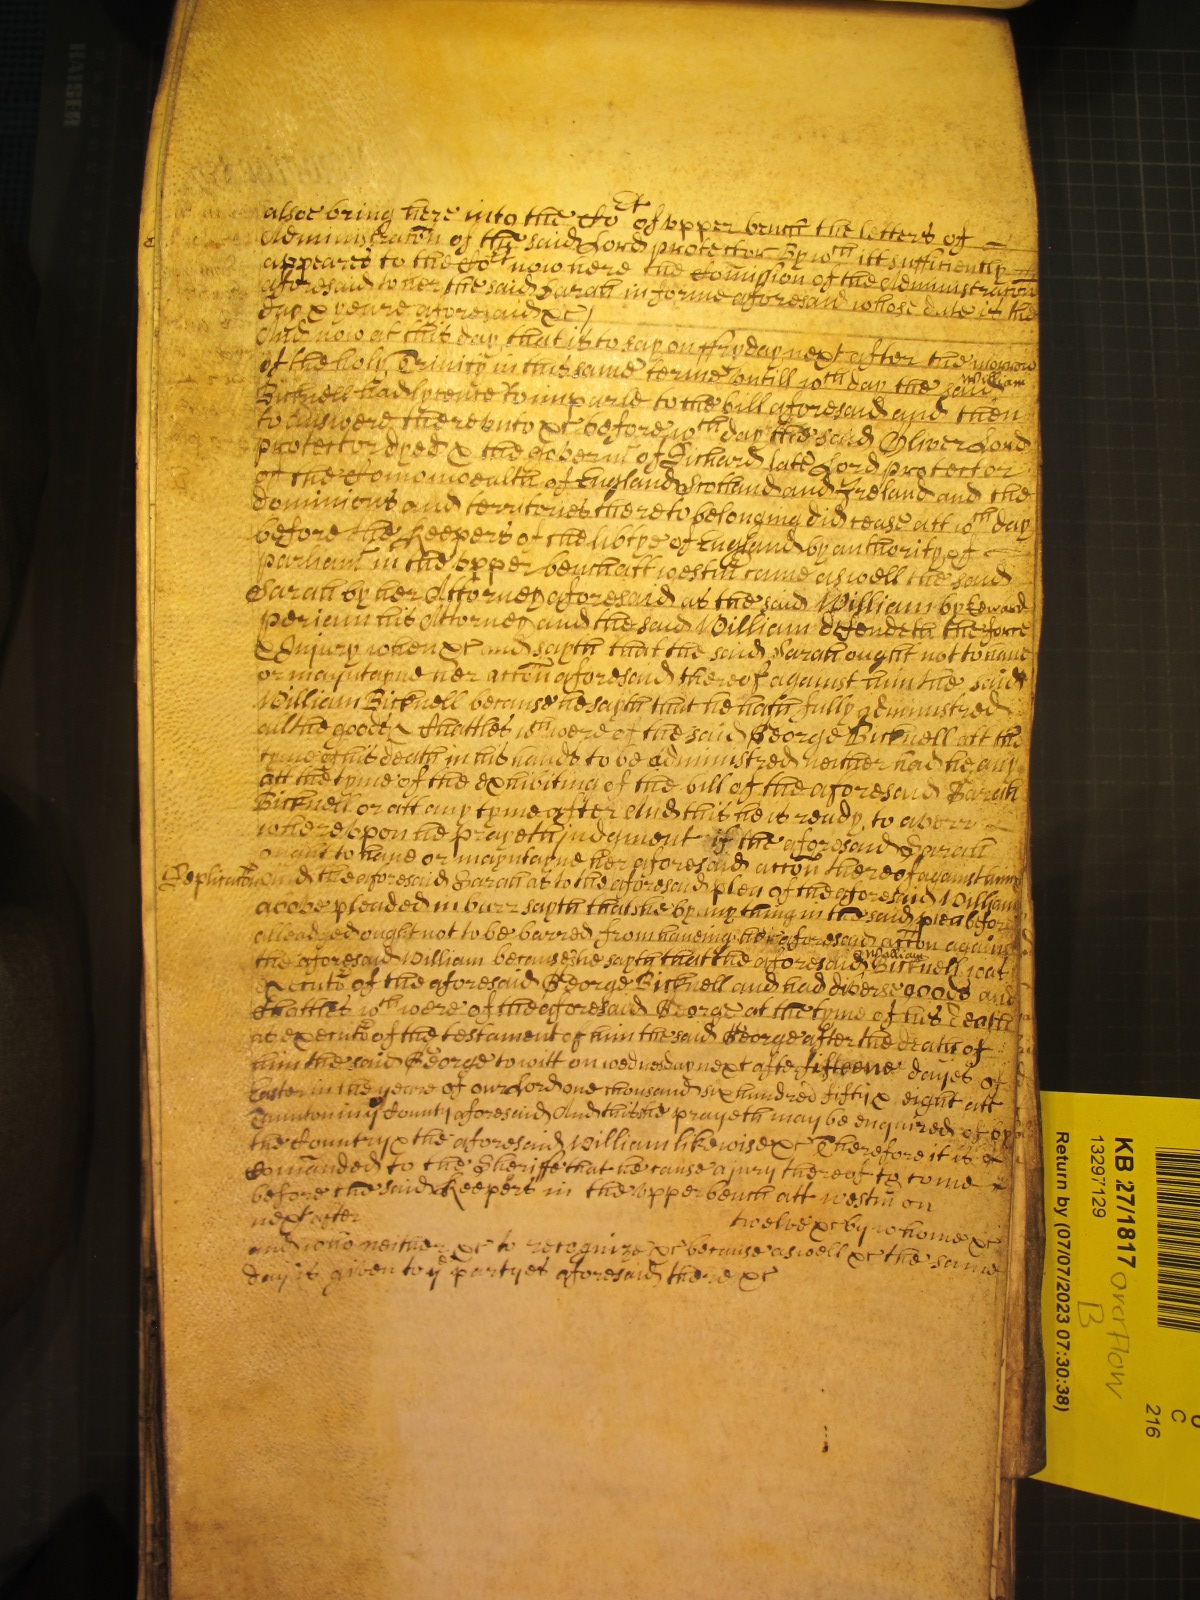 alsoe bring here into the Co^rt of upper bench the letters of
Administracōn of the said Lord protector By w^ch itt sufficiently
appeares to the Co^rt now here the Comission of the Administracōn
aforesaid to her the said Sarah in forme aforesaid whose date is the
day & yeare aforesaid &c /
And now at this day that is to say on ffryday next after the morrow
of the holy Trinity in this same terme untill w^ch day the said William
Bicknell had lycence to imparle to the bill aforesaid and then
to answere thereunto &c before w^ch day the said Oliver Lord
protector dyed & the goverm^t of Richard late Lord protector
of the Comonwealth of England Scotland and Ireland and the
dominions and territories thereto belonging did cease att w^ch day
before the Keepers of the libtye of England by authority of
parliam^t in the upper bench att westm̄ came aswell the said
Sarah by her Attorney aforesaid as the said William by Edward
Periam his Attorney and the said William defendeth the force
& Injury when &c and sayth that the said Sarah ought not to have
or mayntayne her accōn aforesaid thereof against him the said
William Bicknell because he sayth that he hath fully administred
all the goods & Chattles w^ch were of the said George Bicknell att the
tyme of his death in his hands to be administred neither had he any
att the tyme of the exhibiting of the bill of the aforesaid Sarah
Bicknell or att any tyme after And this he is ready to averr
whereupon he prayeth judgment if the aforesaid Sarah
ought to have or mayntayne her aforesaid accōn thereof against him &c
Replicacōn And the aforesaid Sarah as to the aforesaid plea of the aforesaid William
above pleaded in barr sayth that she by any thing in the said plea before
alleadged ought not to be barred from haveing her aforesaid accōn against
the aforesaid William because she sayth that the aforesaid William Bicknell is at
executo^r of the aforesaid George Bicknell and had diverse goods and
Chattles w^ch were of the aforesaid George at the tyme of his death
as executo^r of the testament of him the said George after the death of
him the said George to witt on wednesday next after fifteene dayes of
Easter in the yeare of our Lord one thousand six hundred fifty & eight att
Taunton in y^e County aforesaid And this she prayeth may be enquired of by
the Country & the aforesaid William likewise &c Therefore it is
comānded to the Sheriffe that he cause a jury thereof to come
before the said Keepers in the upper bench att westm̄ on
next after twelve &c by whome &c
and who neither &c to recognize &c because aswell &c the same
day is given to y^e partyes aforesaid there &c
KAISER
KB 27/1817
13297129
Return by (07/07/2023 07:30:38)
overflow
B
C
216